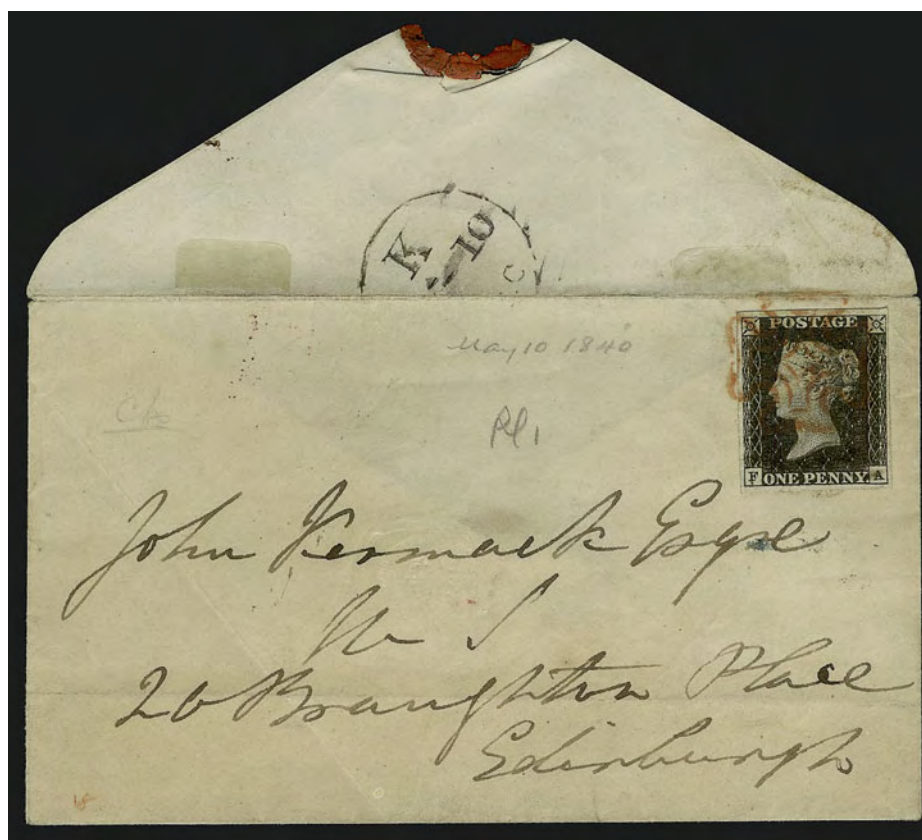 K
10
May 10 1840
Pl 1
POSTAGE
F ONE PENNY A
John Kermack Esqre
W S
20 Braughton Place
Edinburgh